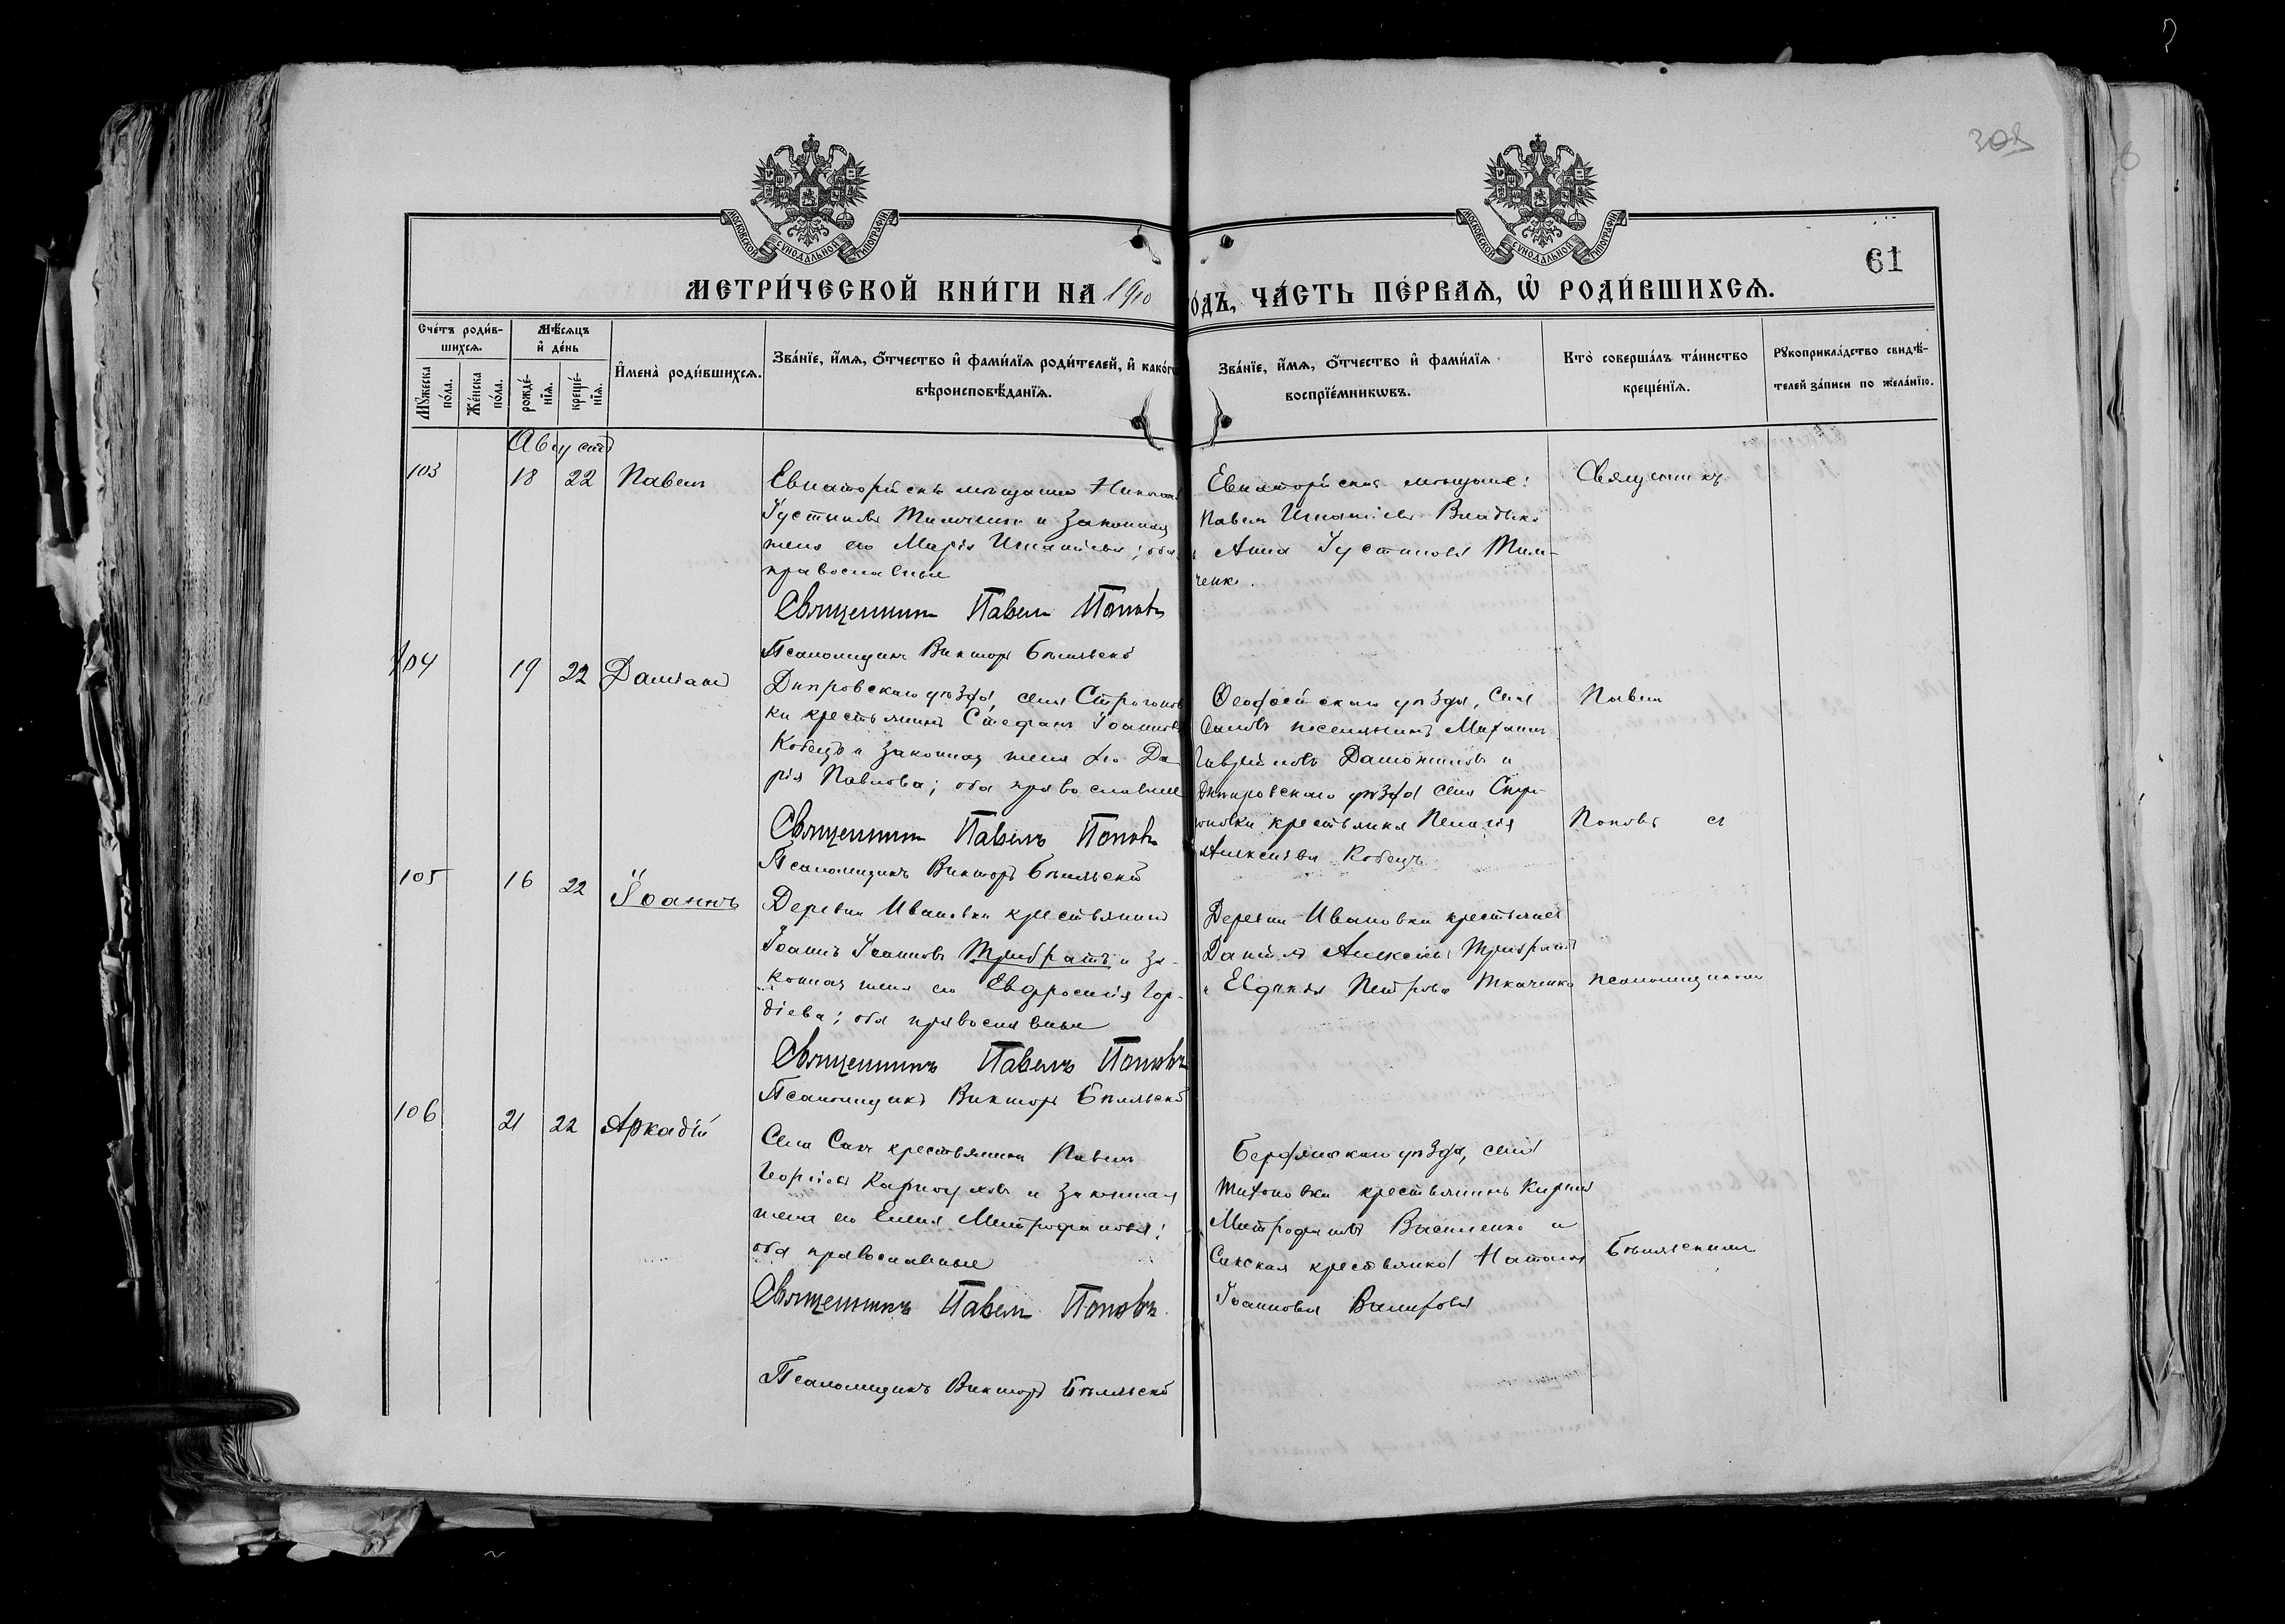 308
61
МОСКОВСКОЙ СѴНОДАЛЬНОЙ ТИПОГРАФІИ
МОСКОВСКОЙ СѴНОДАЛЬНОЙ ТИПОГРАФІИ
МЕТРИ́ЧЕСКОЙ КНИ́ГИ НА 1910
ОДЪ, ЧА́СТЬ ПЕ́РВАЯ, Ѡ РОДИ́ВШИХСЯ.
Сче́тъ роди́в-
шихся.
Мѣ́сяцъ
и де́нь
Му́жеска
по́ла.
Же́нска
по́ла.
рожде́-
нія.
креще́-
нія.
Имена̀ роди́вшихся.
Зва́ніе, и́мя, о́тчество и фами́лія роди́телей, и како́го
вѣроисповѣ́данія.
Зва́ніе, и́мя, о́тчество и фами́лія
воспріе́мниковъ.
Кто̀ соверша́лъ та́инство
креще́нія.
Рукоприкла́дство свидѣ́-
телей за́писи по жела́нію.
Августъ
103 18 22 Павелъ
Евпаторійскій мѣщанинъ Николай
Іустиновъ Тимченко и законная
жена его Марія Игнатіева; оба
православные
Священникъ Павелъ Поповъ
Псаломщикъ Викторъ Бѣльскій
Евпаторійскіе мѣщане:
Павелъ Игнатіевъ Владыко
и Анна Іустинова Тим-
ченко.
Священникъ
104 19 22 Даміанъ
Днпровскаго уѣзда, села Строгонов
ки крестьянинъ Стефанъ Іоанновъ
Кобецъ и законная жена его Да-
рія Павлова; оба православные
Священникъ Павелъ Поповъ
Псаломщикъ Викторъ Бѣльскій
Ѳеодосійскаго уѣзда, села
поселянинъ Михаилъ
Гавріиловъ и
Днпровскаго уѣзда села Стро-
гоновки крестьянка Пелагія
Алексіева Кобецъ
Павелъ
Поповъ съ
105 16 22 Іоаннъ
Деревни Ивановки крестьянинъ
Іоаннъ Іоанновъ Трибратъ и за-
конная жена его Евфросинія Гор-
діева; оба православные
Священникъ Павелъ Поповъ
Псаломщикъ Викторъ Бѣльскій
Деревни Ивановки крестьяне
Даніилъ Алексіевъ Трибратъ
и Евдокія Петрова Ткаченко
псаломщикомъ
106 21 22 Аркадій
Села Сакъ крестьянинъ Павелъ
Георгіевъ и законная
жена его Елена Митрофанова;
оба православные
Священникъ Павелъ Поповъ
Псаломщикъ Викторъ Бѣльскій
Бердянскаго уѣзда, села
крестьянинъ Кириллъ
Митрофановъ Василенко и
Сакская крестьянка Наталія
Іоаннова
Бѣльскимъ